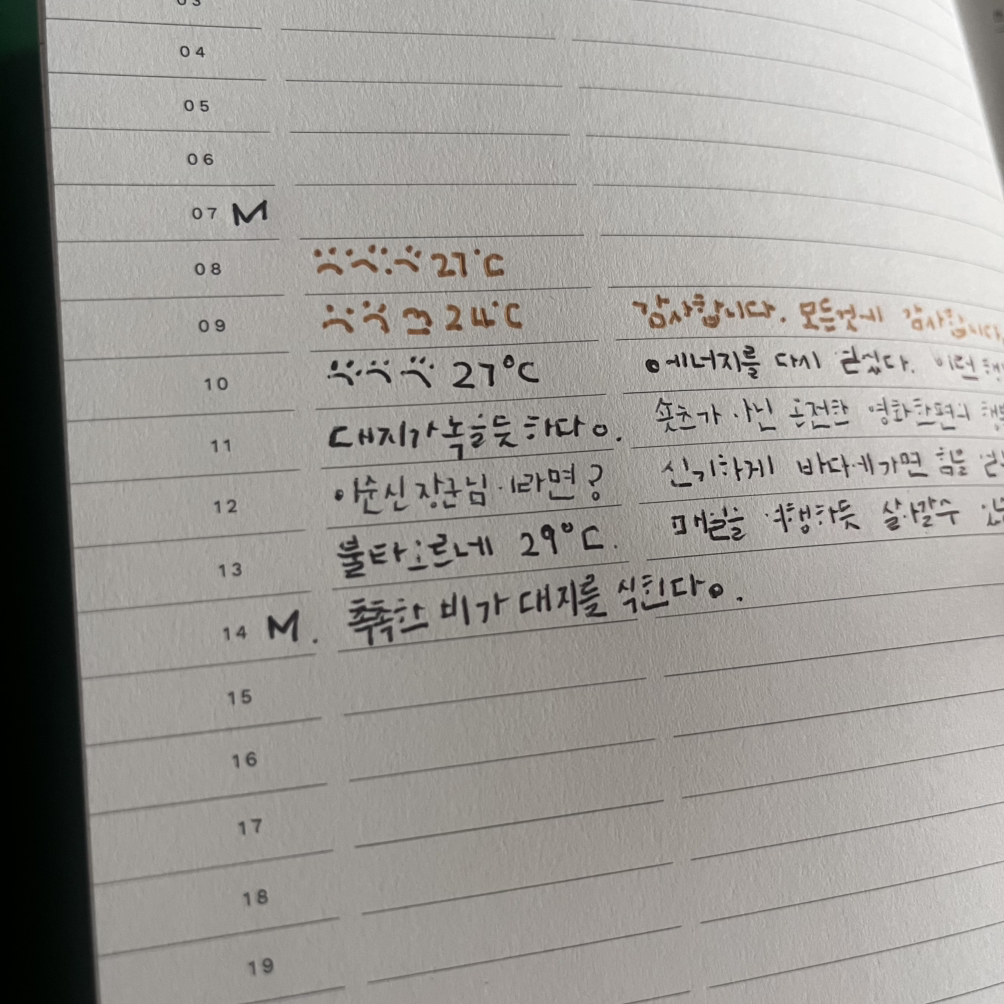 03
04
05
06
07 M
08 27°C
09 24°C 감사합니다. 모든것에 감사합니다.
10 27°C 에너지를 다시 얻었다. 이런
11 대지가 녹을듯 하다. 숏츠가 아닌 온전한 영화한편의
12 이순신 장군님이라면? 신기하게 바다에가면 힘을
13 불타오르네 29°C. 매일을 여행하듯 살아갈수
14 M. 촉촉한 비가 대지를 식힌다.
15
16
17
18
19